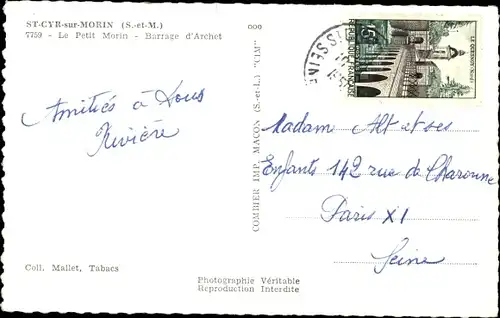 ST-CYR-sur-MORIN (S.-et-M.)
7759 - Le Petit Morin - Barrage d'Archet
Amitiés à tous
Rivière
Coll. Mallet, Tabacs
Photographie Véritable
Reproduction Interdite
COMBIER IMP. MACON (S.-et-L.) "CIM"
15F
REPUBLIQUE FRANÇAISE
LE QUESNOY (Nord)
SEINE
Madame Alt et ses
Enfants 142 rue de Charonne
Paris XI
Seine